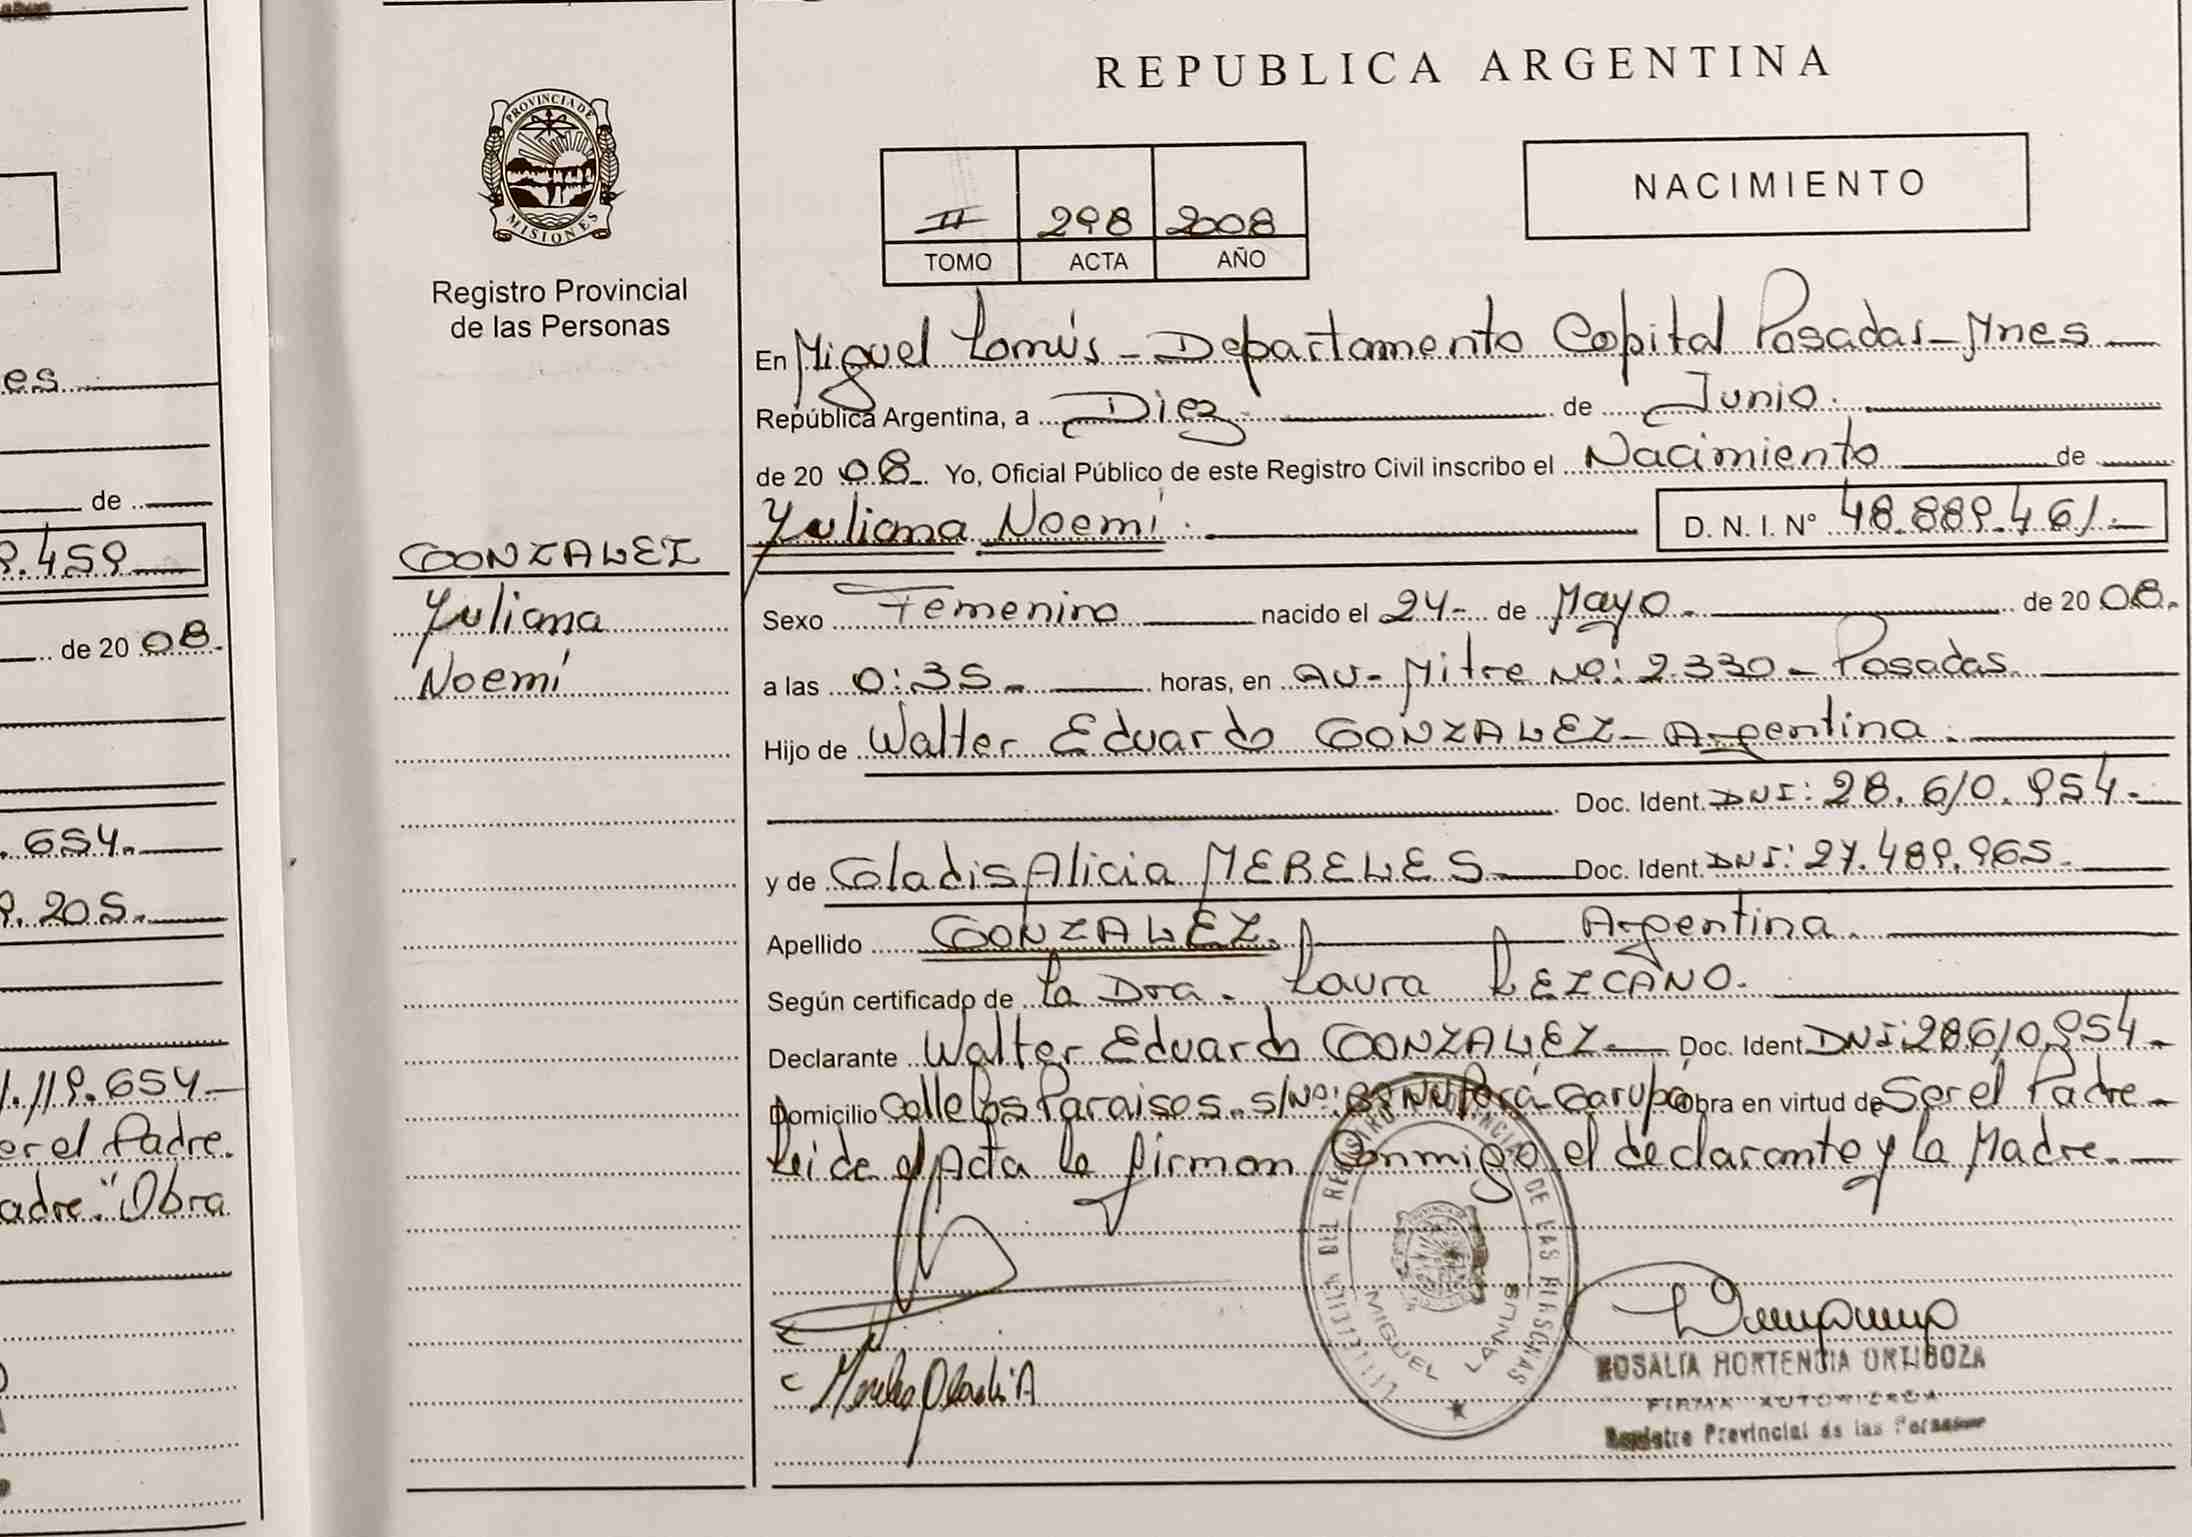 es
de
9.459
de 20 08.
. 654.
9.205.
1.119.654
er el Padre.
adre." Obra
PROVINCIA DE
MISIONES
Registro Provincial
de las Personas
GONZALEZ
Yuliana
Noemí
REPUBLICA ARGENTINA
II 298 2008
TOMO ACTA AÑO
NACIMIENTO
En Miguel Lanús - Departamento Capital Posadas - Mnes
República Argentina, a Diez de Junio.
de 20 08. Yo, Oficial Público de este Registro Civil inscribo el Nacimiento de
Yuliana Noemí. D. N. I. Nº 48.889.461.
Sexo Femenino nacido el 24 - de Mayo. de 20 08.
a las 0:35 horas, en Av - Mitre No: 2.330 - Posadas.
Hijo de Walter Eduardo GONZALEZ - Argentina.
Doc. Ident. DNI: 28.610.954.
y de Gladis Alicia MERELES Doc. Ident. DNI: 27.489.965.
Apellido GONZALEZ. Argentina.
Según certificado de La Dra. Laura LEZCANO.
Declarante Walter Eduardo GONZALEZ. Doc. Ident. DNI: 28.610.954
Domicilio Calle los Paraisos. s/No: Bº Ñu Porá - Garupá Obra en virtud de Ser el Padre
Leída el Acta la firman Conmigo el declarante y la Madre.
Mereles Gladis A
MIGUEL LANUS
ROSALIA HORTENCIA ORTIGOZA
FIRMA AUTORIZADA
Registro Provincial de las Personas